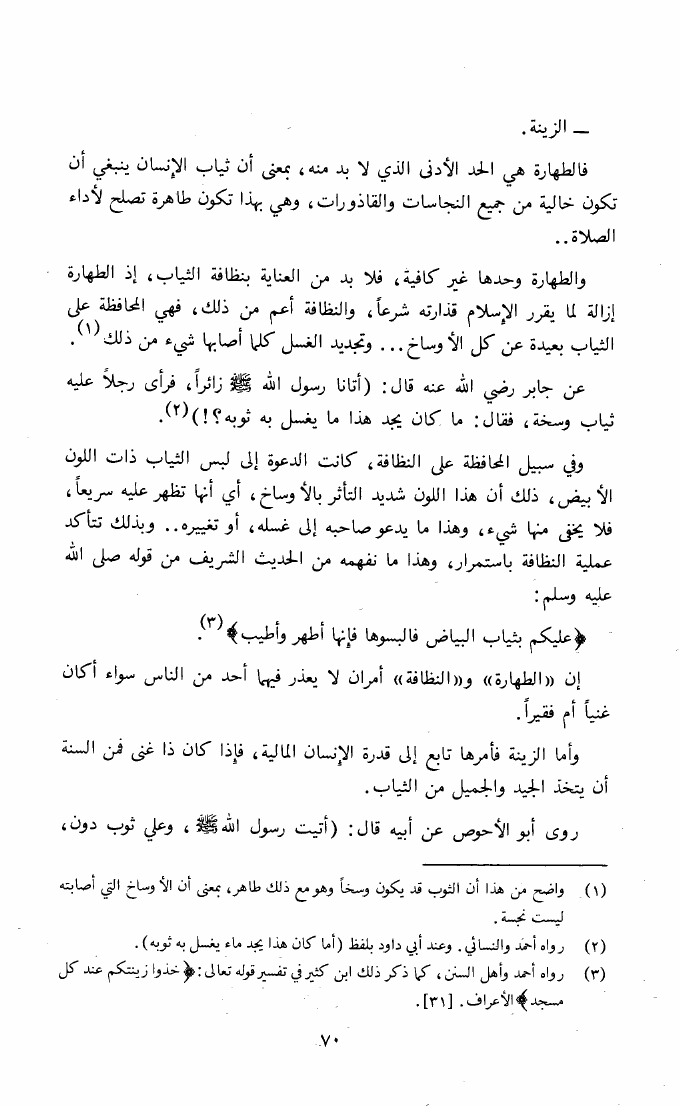 — الزينة.
فالطهارة هي الحد الأدنى الذي لا بد منه، بمعنى أن ثياب الإنسان ينبغي أن
تكون خالية من جميع النجاسات والقاذورات، وهي بهذا تكون طاهرة تصلح لأداء
الصلاة..
والطهارة وحدها غير كافية، فلا بد من العناية بنظافة الثياب، إذ الطهارة
إزالة لما يقرر الإسلام قذارته شرعاً، والنظافة أعم من ذلك، فهي المحافظة على
الثياب بعيدة عن كل الأوساخ... وتجديد الغسل كلما أصابها شيء من ذلك(١).
عن جابر رضي الله عنه قال: (أتانا رسول الله ﷺ زائراً، فرأى رجلاً عليه
ثياب وسخة، فقال: ما كان يجد هذا ما يغسل به ثوبه؟!)(٢).
وفي سبيل المحافظة على النظافة، كانت الدعوة إلى لبس الثياب ذات اللون
الأبيض، ذلك أن هذا اللون شديد التأثر بالأوساخ، أي أنها تظهر عليه سريعاً،
فلا يخفى منها شيء، وهذا ما يدعو صاحبه إلى غسله، أو تغييره.. وبذلك تتأكد
عملية النظافة باستمرار، وهذا ما نفهمه من الحديث الشريف من قوله صلى الله
عليه وسلم:
﴿عليكم بثياب البياض فالبسوها فإنها أطهر وأطيب﴾(٣).
إن «الطهارة» و«النظافة» أمران لا يعذر فيهما أحد من الناس سواء أكان
غنياً أم فقيراً.
وأما الزينة فأمرها تابع إلى قدرة الإنسان المالية، فإذا كان ذا غنى فمن السنة
أن يتخذ الجيد والجميل من الثياب.
روى أبو الأحوص عن أبيه قال: (أتيت رسول الله ﷺ، وعلي ثوب دون،
(١) واضح من هذا أن الثوب قد يكون وسخاً وهو مع ذلك طاهر، بمعنى أن الأوساخ التي أصابته
ليست نجسة.
(٢) رواه أحمد والنسائي. وعند أبي داود بلفظ (أما كان هذا يجد ماء يغسل به ثوبه).
(٣) رواه أحمد وأهل السنن، كما ذكر ذلك ابن كثير في تفسير قوله تعالى: ﴿خذوا زينتكم عند كل
مسجد﴾ الأعراف. [٣١].
٧٠